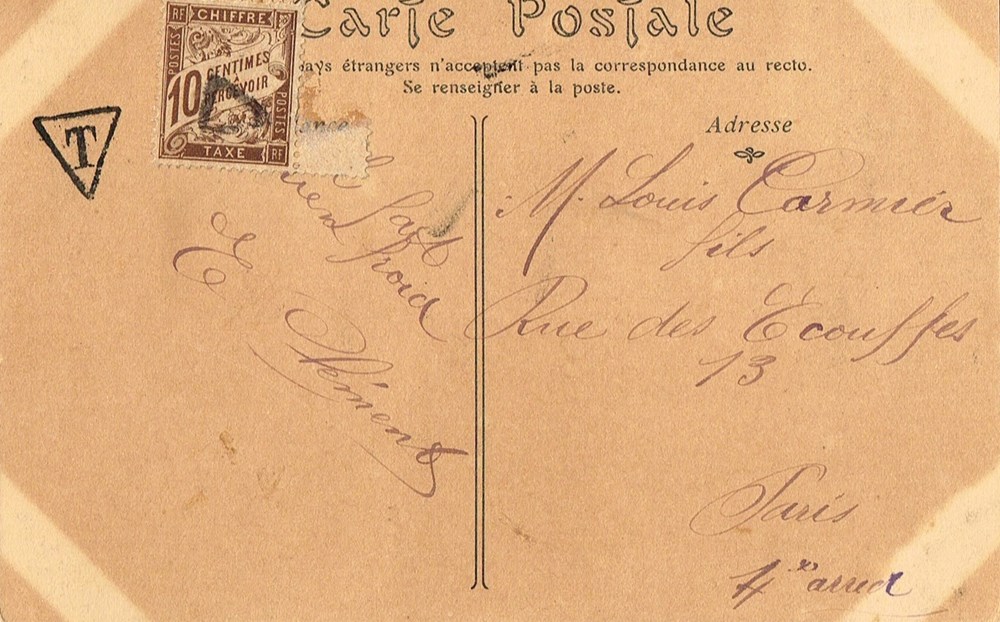 Carte Postale
pays étrangers n'acceptent pas la correspondance au recto.
Se renseigner à la poste.
RF CHIFFRE
POSTES
10 CENTIMES
PERCEVOIR
POSTES
TAXE RF
T
ance
Adresse
fait
froid
E
M. Louis Carmier
fils
Rue des Ecouffes
13
Paris
4e arred